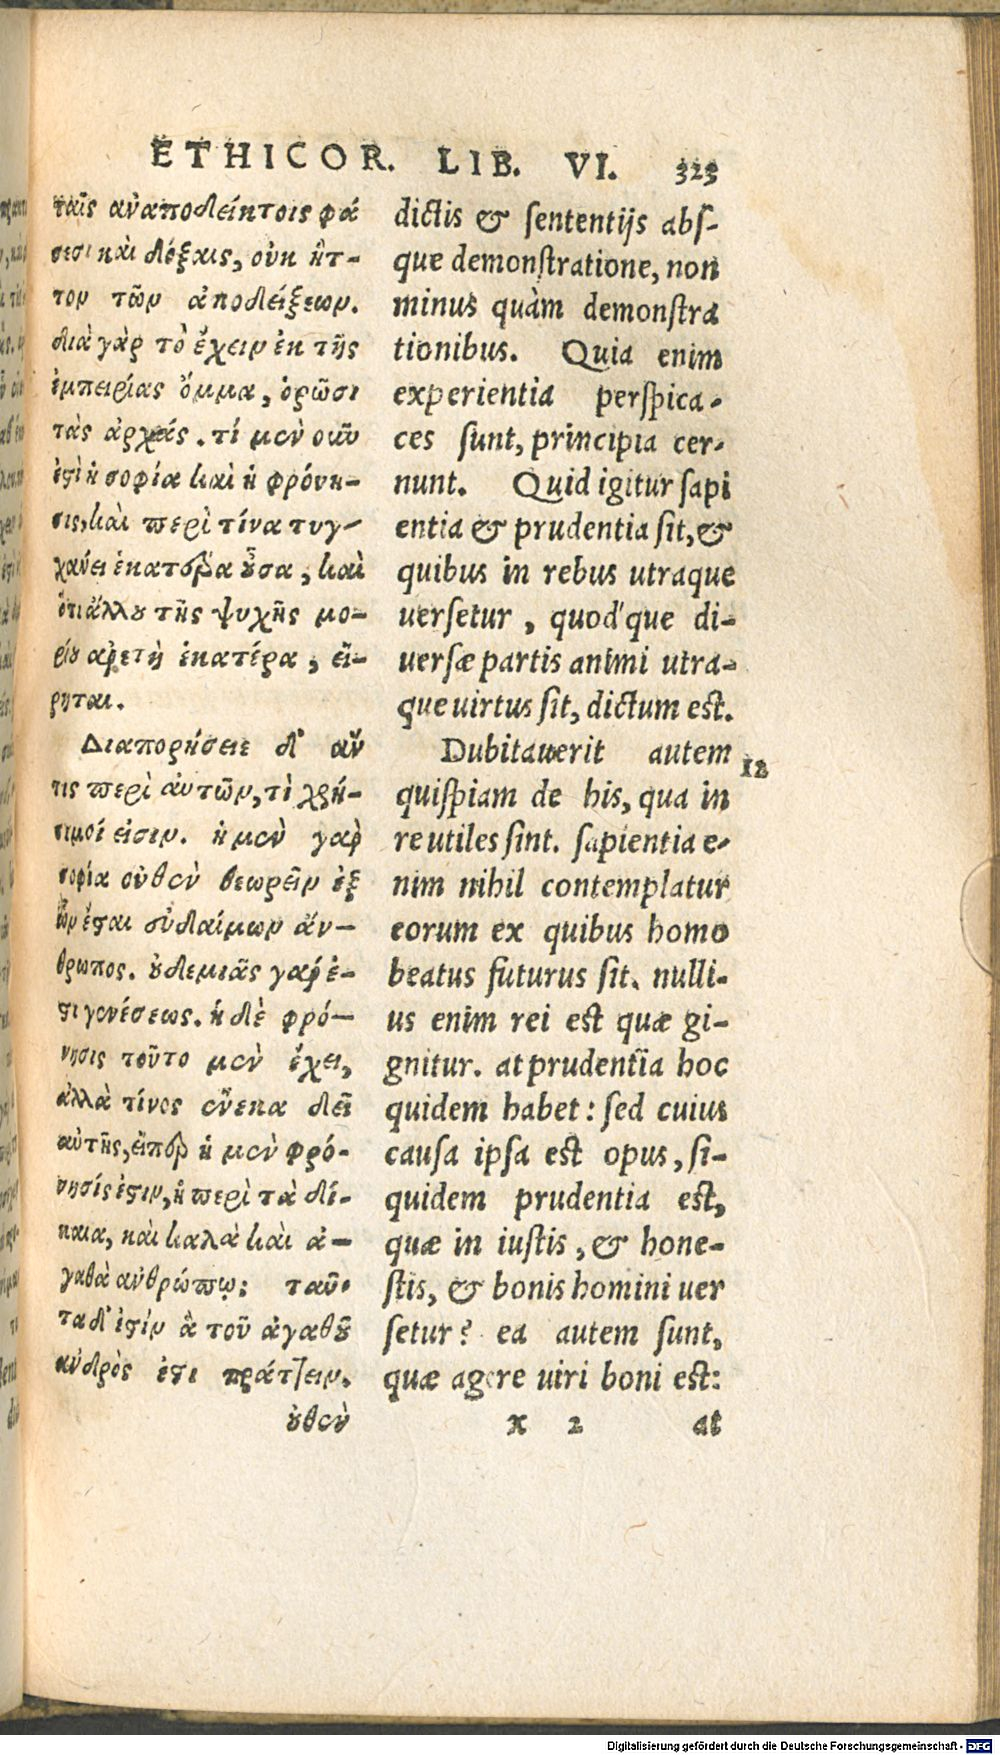 ETHICOR. LIB. VI. 323
ταῖς ἀναποδείκτοις φά
σεσι καὶ δόξαις, οὐκ ἧτ-
τον τῶν ἀποδείξεων.
διὰ γὰρ τὸ ἔχειν ἐκ τῆς
ἐμπειρίας ὄμμα, ὁρῶσι
τὰς ἀρχάς. τί μὲν οὖν
ἐστὶ ἡ σοφία καὶ ἡ φρόνη-
σις, καὶ περὶ τίνα τυγ-
χάνει ἑκατέρα οὖσα, καὶ
ὅτι ἄλλου τῆς ψυχῆς μο-
ρίου ἀρετὴ ἑκατέρα, εἴ-
ρηται.
Διαπορήσειε δ' ἄν
τις περὶ αὐτῶν, τὶ χρή-
σιμοί εἰσιν. ἡ μὲν γὰρ
σοφία οὐθὲν θεωρεῖν ἐξ
ὧν ἔσται εὐδαίμων ἄν-
θρωπος. οὐδεμιᾶς γάρ ἐ-
στι γενέσεως. ἡ δὲ φρό-
νησις τοῦτο μὲν ἔχει,
ἀλλὰ τίνος ἕνεκα δεῖ
αὐτῆς, εἴπερ ἡ μὲν φρό-
νησίς ἐστιν, ἡ περὶ τὰ δί-
καια, καὶ καλὰ καὶ ἀ-
γαθὰ ἀνθρώπῳ; ταῦ-
τα δ' ἐστὶν ἃ τοῦ ἀγαθοῦ
ἀνδρὸς ἐστι πράττειν.
οὐθὲν
dictis & sententijs abs-
que demonstratione, non
minus quàm demonstra
tionibus. Quia enim
experientia perspica-
ces sunt, principia cer-
nunt. Quid igitur sapi
entia & prudentia sit, &
quibus in rebus utraque
uersetur, quod'que di-
uersæ partis animi utra-
que uirtus sit, dictum est.
Dubitauerit autem 12
quispiam de his, qua in
re utiles sint. sapientia e-
nim nihil contemplatur
eorum ex quibus homo
beatus futurus sit. nulli-
us enim rei est quæ gi-
gnitur. at prudentia hoc
quidem habet: sed cuius
causa ipsa est opus, si-
quidem prudentia est,
quæ in iustis, & hone-
stis, & bonis homini uer
setur? ea autem sunt,
quæ agere uiri boni est:
x 2 at
Digitalisierung gefördert durch die Deutsche Forschungsgemeinschaft - DFG